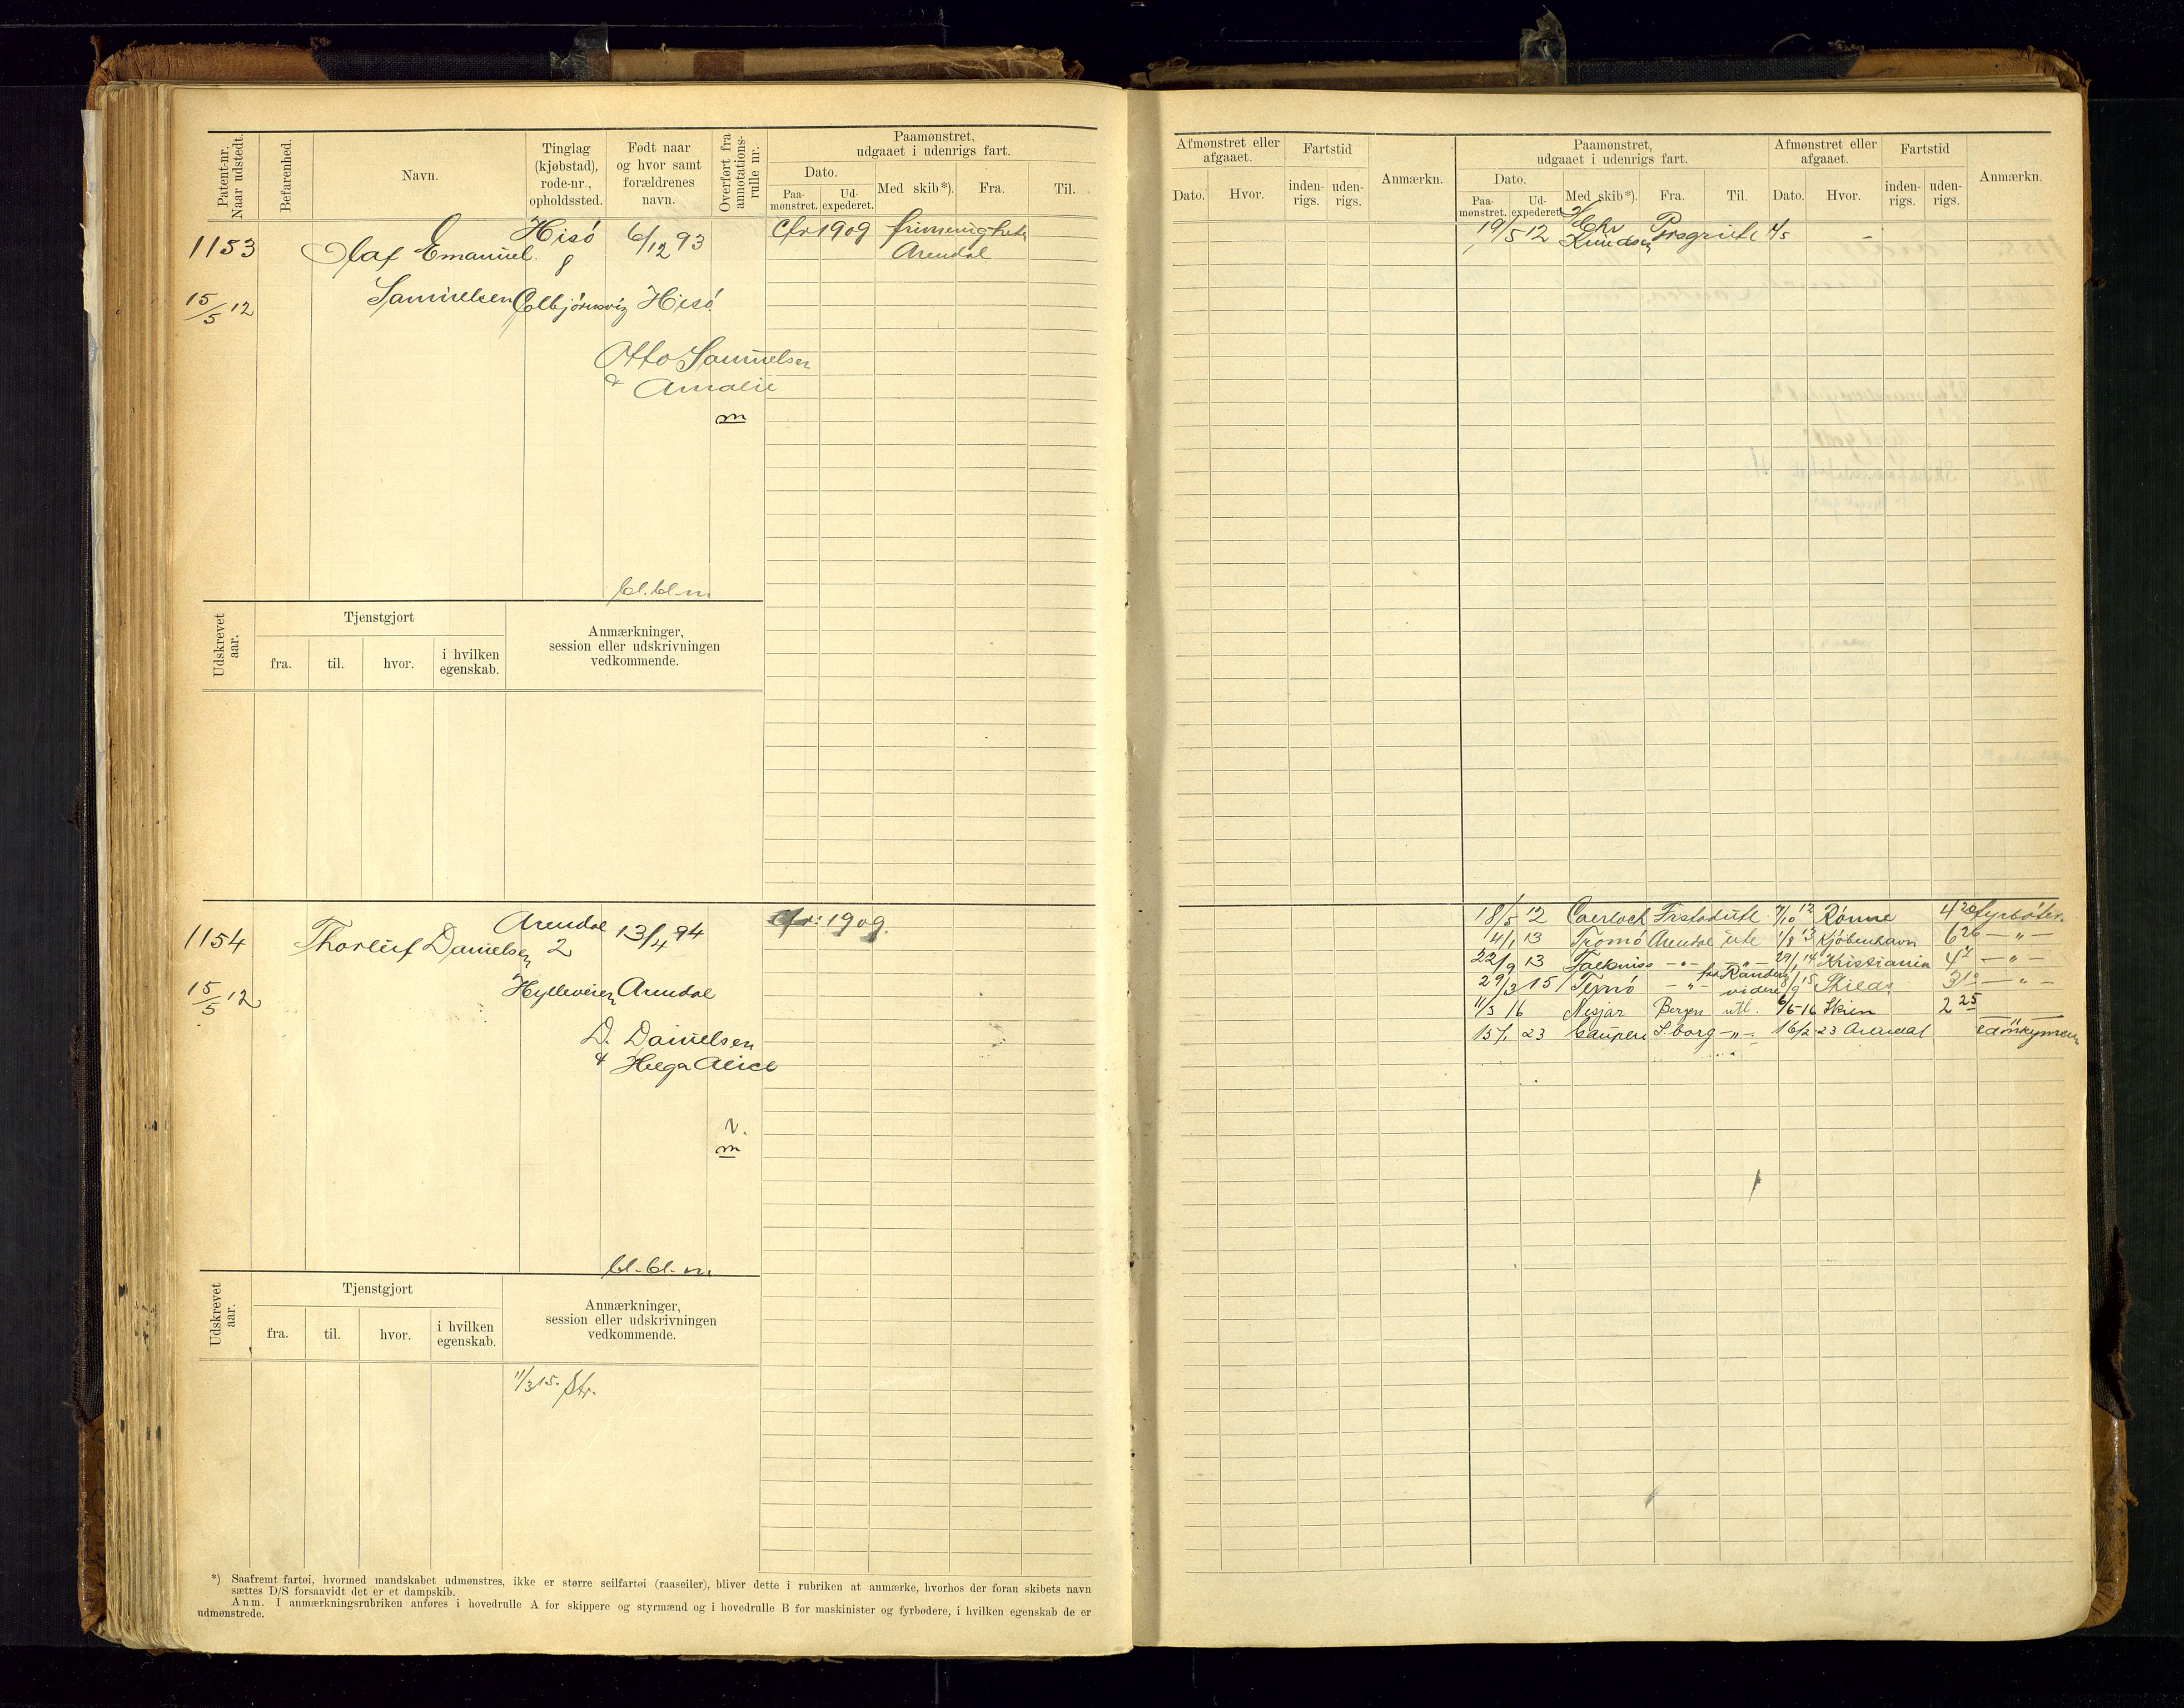 Patent-nr. Naar udstedt.
Befarenhed.
Navn.
Tinglag (kjøbstad), rode-nr., opholdssted.
Født naar og hvor samt forældrenes navn.
Overført fra annotations-rulle nr.
Paamønstret, udgaaet i udenrigs fart.
Dato.
Paa-mønstret.
Ud-expederet.
Med skib*).
Fra.
Til.
1153
Olaf Emanuel
Hisö
8
6/12 93
Cfr 1909
Arendal
15/5 12
Samuelsen
Colbjörnsvig
Hisö
Otto Samuelsen
& Amalie
m
bl. bl. m.
Udskrevet aar.
Tjenstgjort
fra.
til.
hvor.
i hvilken egenskab.
Anmærkninger, session eller udskrivningen vedkommende.
1154
Thorleif Danielsen
Arendal
2
13/4 94
Cfr: 1909.
15/5 12
Hylleveien
Arendal
D. Danielsen
& Helga Alice
m
bl. bl. m.
Udskrevet aar.
Tjenstgjort
fra.
til.
hvor.
i hvilken egenskab.
Anmærkninger, session eller udskrivningen vedkommende.
11/3 15. Str.
*) Saafremt fartøi, hvormed mandskabet udmønstres, ikke er større seilfartøi (raaseiler), bliver dette i rubriken at anmærke, hvorhos der foran skibets navn
sættes D/S forsaavidt det er et dampskib.
Anm. I anmærkningsrubriken anføres i hovedrulle A for skippere og styrmænd og i hovedrulle B for maskinister og fyrbødere, i hvilken egenskab de er
udmønstrede.
Afmønstret eller afgaaet.
Dato.
Hvor.
Fartstid
inden-rigs.
uden-rigs.
Anmærkn.
Paamønstret, udgaaet i udenrigs fart.
Dato.
Paa-mønstret.
Ud-expederet.
Med skib*).
Fra.
Til.
Afmønstret eller afgaaet.
Dato.
Hvor.
Fartstid
inden-rigs.
uden-rigs.
Anmærkn.
19/5 12 Chr Knudsen
18/5 12 Caerloch Frstad utl. 7/10 12 Rönne 4 20 fyrböter
4/1 13 Tromö Arendal utl 1/8 13 Kjöbenhavn 6 26 — „ —
22/9 13 — „ — — „ — 29/1 14 Kristiania 4 7 — „ —
29/3 15 — „ — fra Randers videre — „ —
11/3 16 Nisjar Bergen utl. 6/5-16 Skien 2 25
15/1 23 Gaupen S.borg — „ — 16/2 23 Arendal